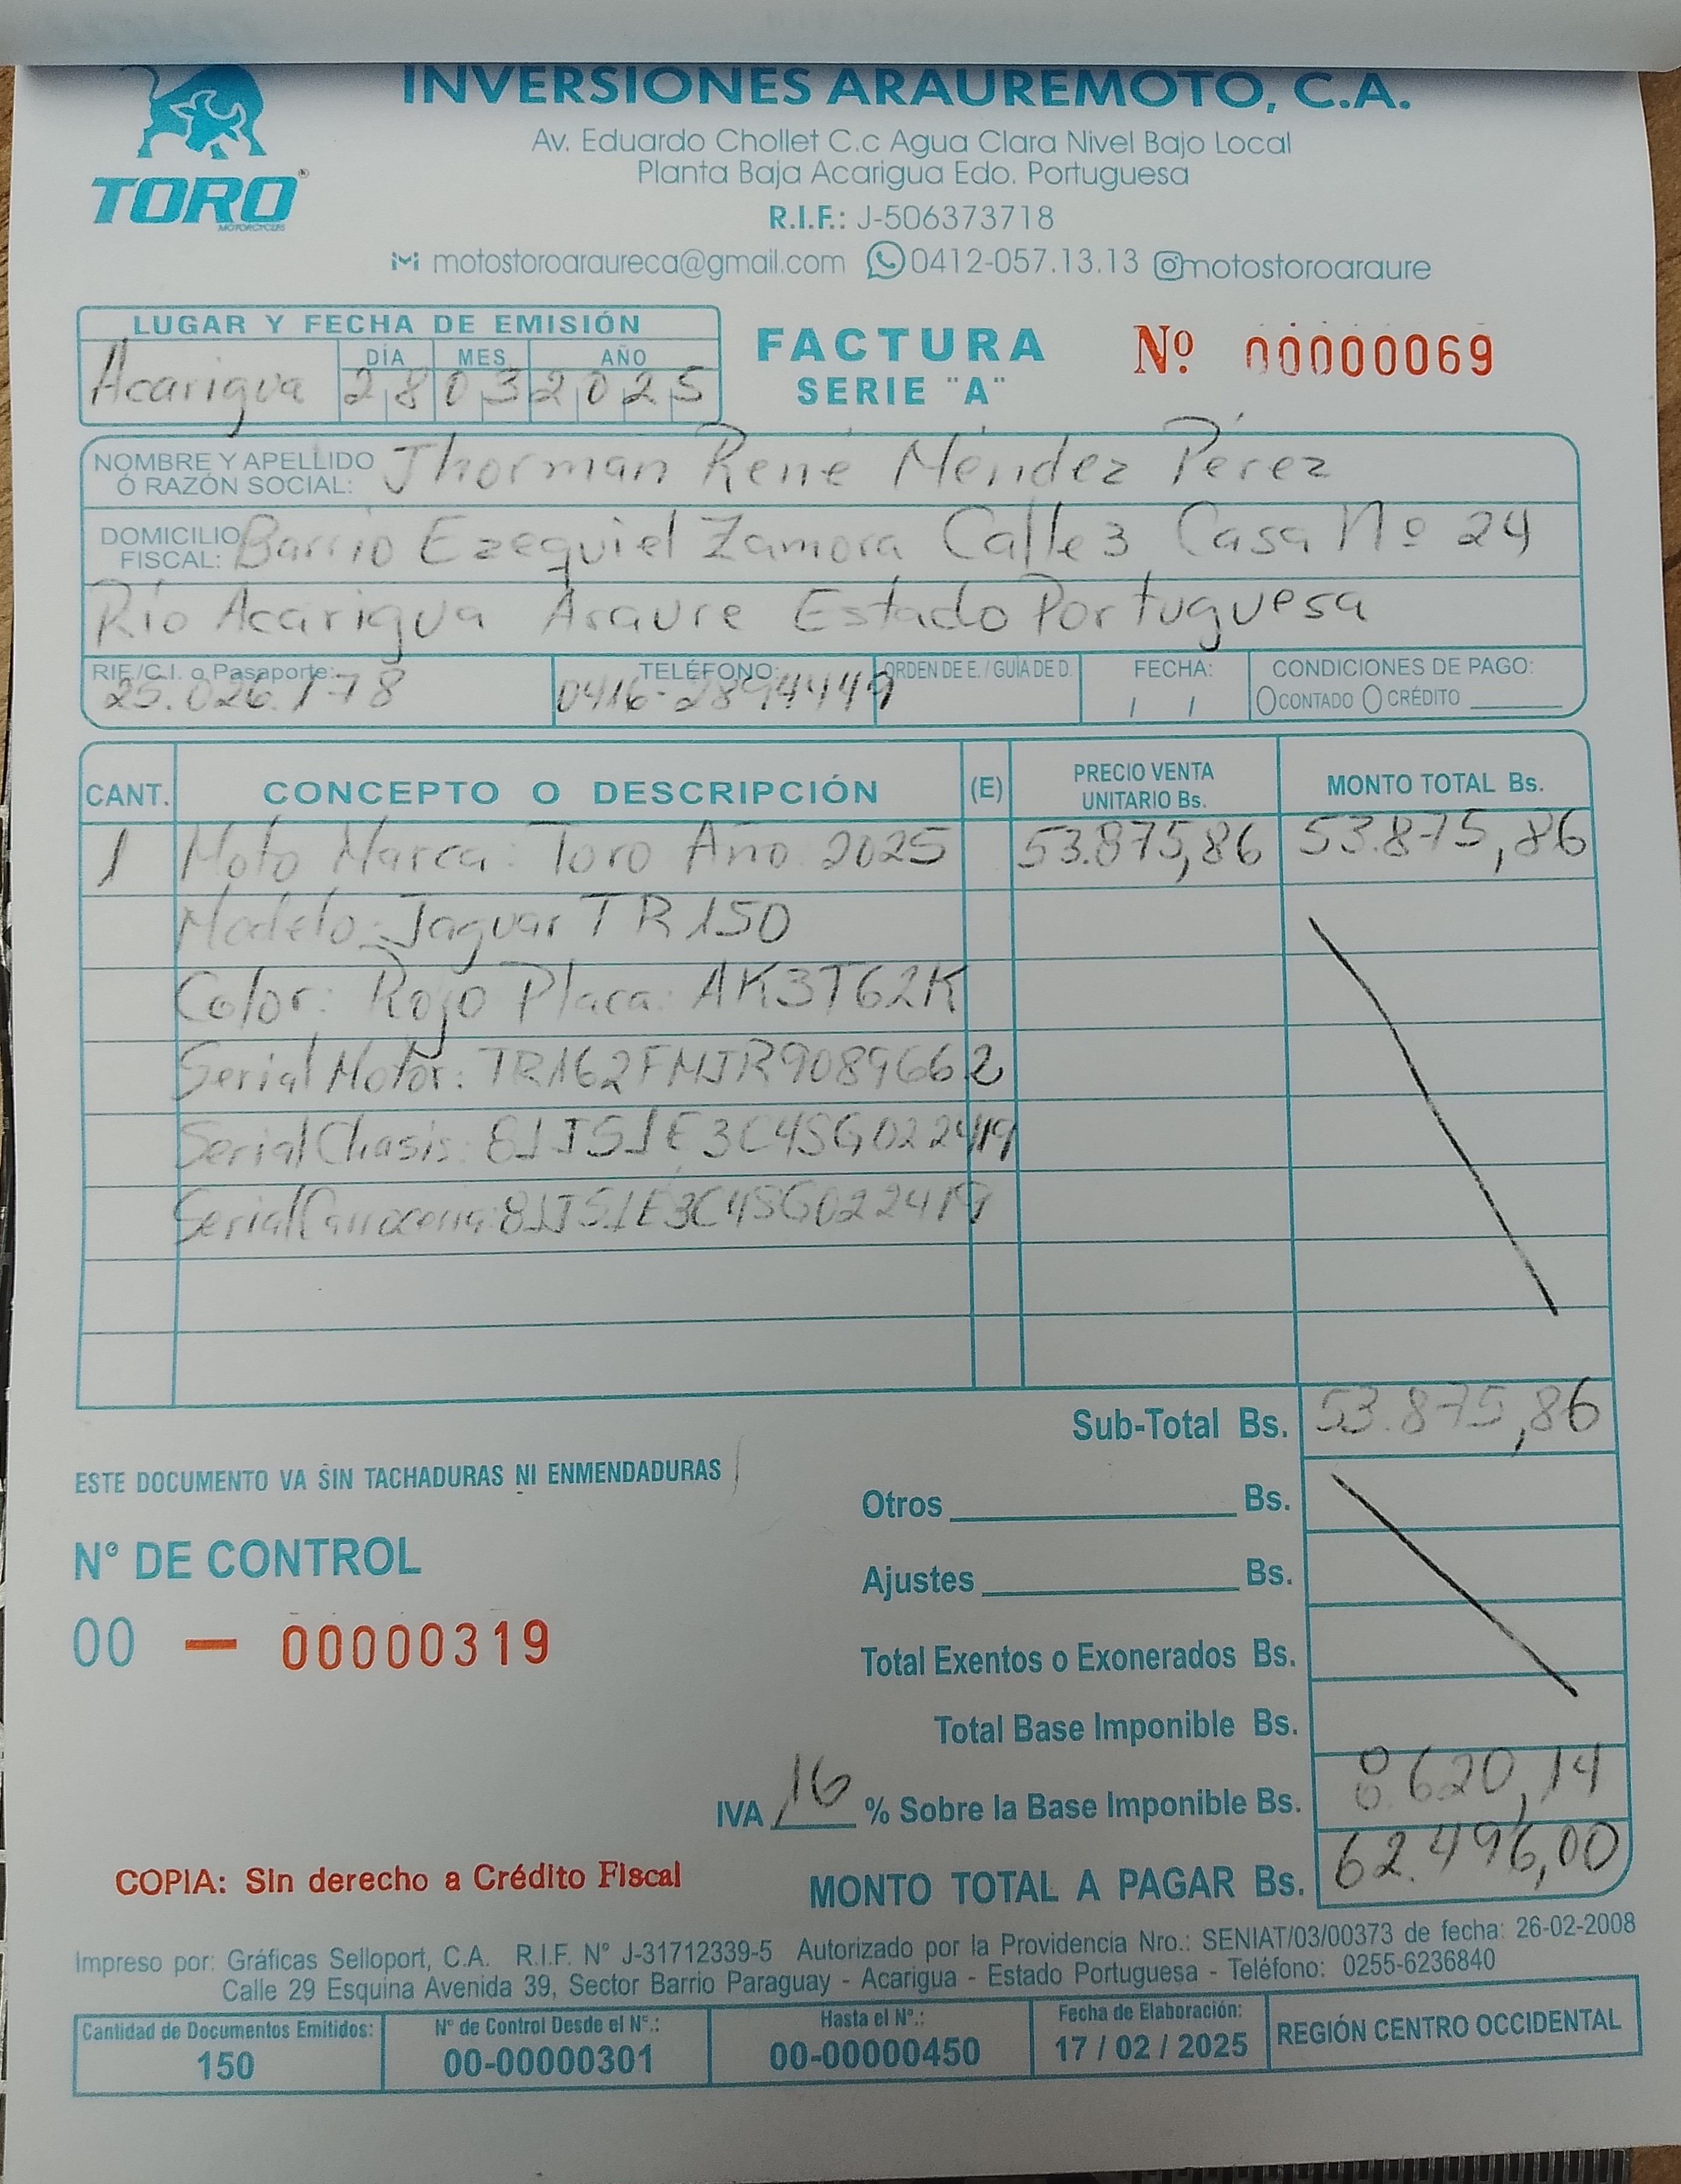 INVERSIONES ARAUREMOTO, C.A.
TORO
MOTORCYCLES
Av. Eduardo Chollet C.c Agua Clara Nivel Bajo Local
Planta Baja Acarigua Edo. Portuguesa
R.I.F.: J-506373718
motostoroaraureca@gmail.com 0412-057.13.13 motostoroaraure
LUGAR Y FECHA DE EMISIÓN
DÍA MES AÑO
Acarigua 28 03 2025
FACTURA
SERIE "A"
Nº 00000069
NOMBRE Y APELLIDO
Ó RAZÓN SOCIAL: Jhorman René Méndez Pérez
DOMICILIO
FISCAL: Barrio Ezequiel Zamora Calle 3 Casa Nº 24
Río Acarigua Araure Estado Portuguesa
RIF./C.I. o Pasaporte: TELÉFONO: ORDEN DE E. / GUÍA DE D. FECHA: CONDICIONES DE PAGO:
25.026.178 0416-2894449 / / CONTADO CRÉDITO
CANT. CONCEPTO O DESCRIPCIÓN (E) PRECIO VENTA UNITARIO Bs. MONTO TOTAL Bs.
1 Moto Marca: Toro Año 2025 53.875,86 53.875,86
Modelo: Jaguar TR150
Color: Rojo Placa: AK3T62K
Serial Motor: TR162FMJR9089662
Serial Chasis: 81JS1E3C4SG022419
Serial Carrocería: 81JS1E3C4SG022419
Sub-Total Bs. 53.875,86
ESTE DOCUMENTO VA SIN TACHADURAS NI ENMENDADURAS
Otros Bs.
N° DE CONTROL
Ajustes Bs.
00 - 00000319
Total Exentos o Exonerados Bs.
Total Base Imponible Bs.
IVA 16 % Sobre la Base Imponible Bs. 8.620,14
COPIA: Sin derecho a Crédito Fiscal
MONTO TOTAL A PAGAR Bs. 62.496,00
Impreso por: Gráficas Selloport, C.A. R.I.F. N° J-31712339-5 Autorizado por la Providencia Nro.: SENIAT/03/00373 de fecha: 26-02-2008
Calle 29 Esquina Avenida 39, Sector Barrio Paraguay - Acarigua - Estado Portuguesa - Teléfono: 0255-6236840
Cantidad de Documentos Emitidos: N° de Control Desde el N°.: Hasta el N°.: Fecha de Elaboración: REGIÓN CENTRO OCCIDENTAL
150 00-00000301 00-00000450 17 / 02 / 2025